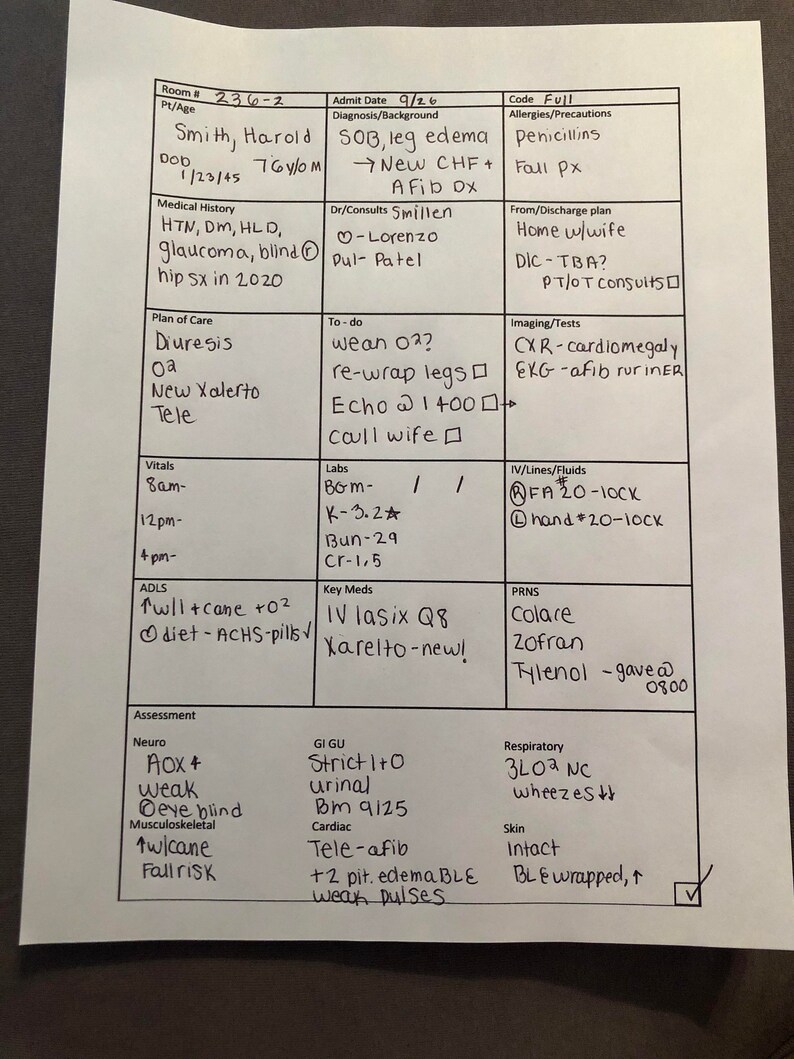 Room # 236-2
Admit Date 9/26
Code Full
Pt/Age
Smith, Harold
DOB 76y/o M
1/23/45
Diagnosis/Background
SOB, leg edema
→ New CHF +
AFib DX
Allergies/Precautions
Penicillins
Fall px
Medical History
HTN, DM, HLD,
glaucoma, blind Ⓡ
hip sx in 2020
Dr/Consults Smillen
♡ - Lorenzo
Pul - Patel
From/Discharge plan
Home w/wife
D/C - TBA?
PT/OT consults □
Plan of Care
Diuresis
O2
New Xalerto
Tele
To - do
wean O2?
re-wrap legs □
Echo @ 1400 □→
call wife □
Imaging/Tests
CXR - cardiomegaly
EKG - afib rvr in ER
Vitals
8am-
12pm-
4pm-
Labs
BGM- / /
K-3.2☆
Bun-29
Cr-1.5
IV/Lines/Fluids
Ⓡ FA #20-lock
Ⓛ hand #20-lock
ADLS
↑ w/1 + cane + O2
♡ diet - ACHS - pills ✓
Key Meds
IV lasix Q8
Xarelto - new!
PRNS
Colace
Zofran
Tylenol - gave @
0800
Assessment
Neuro
AOX4
weak
eye blind
GI GU
Strict I+O
urinal
Bm 9/25
Respiratory
3L O2 NC
wheezes ↓↓
Musculoskeletal
↑ w/cane
Fall risk
Cardiac
Tele - afib
+2 pit. edema BLE
weak pulses
Skin
Intact
BLE wrapped, ↑